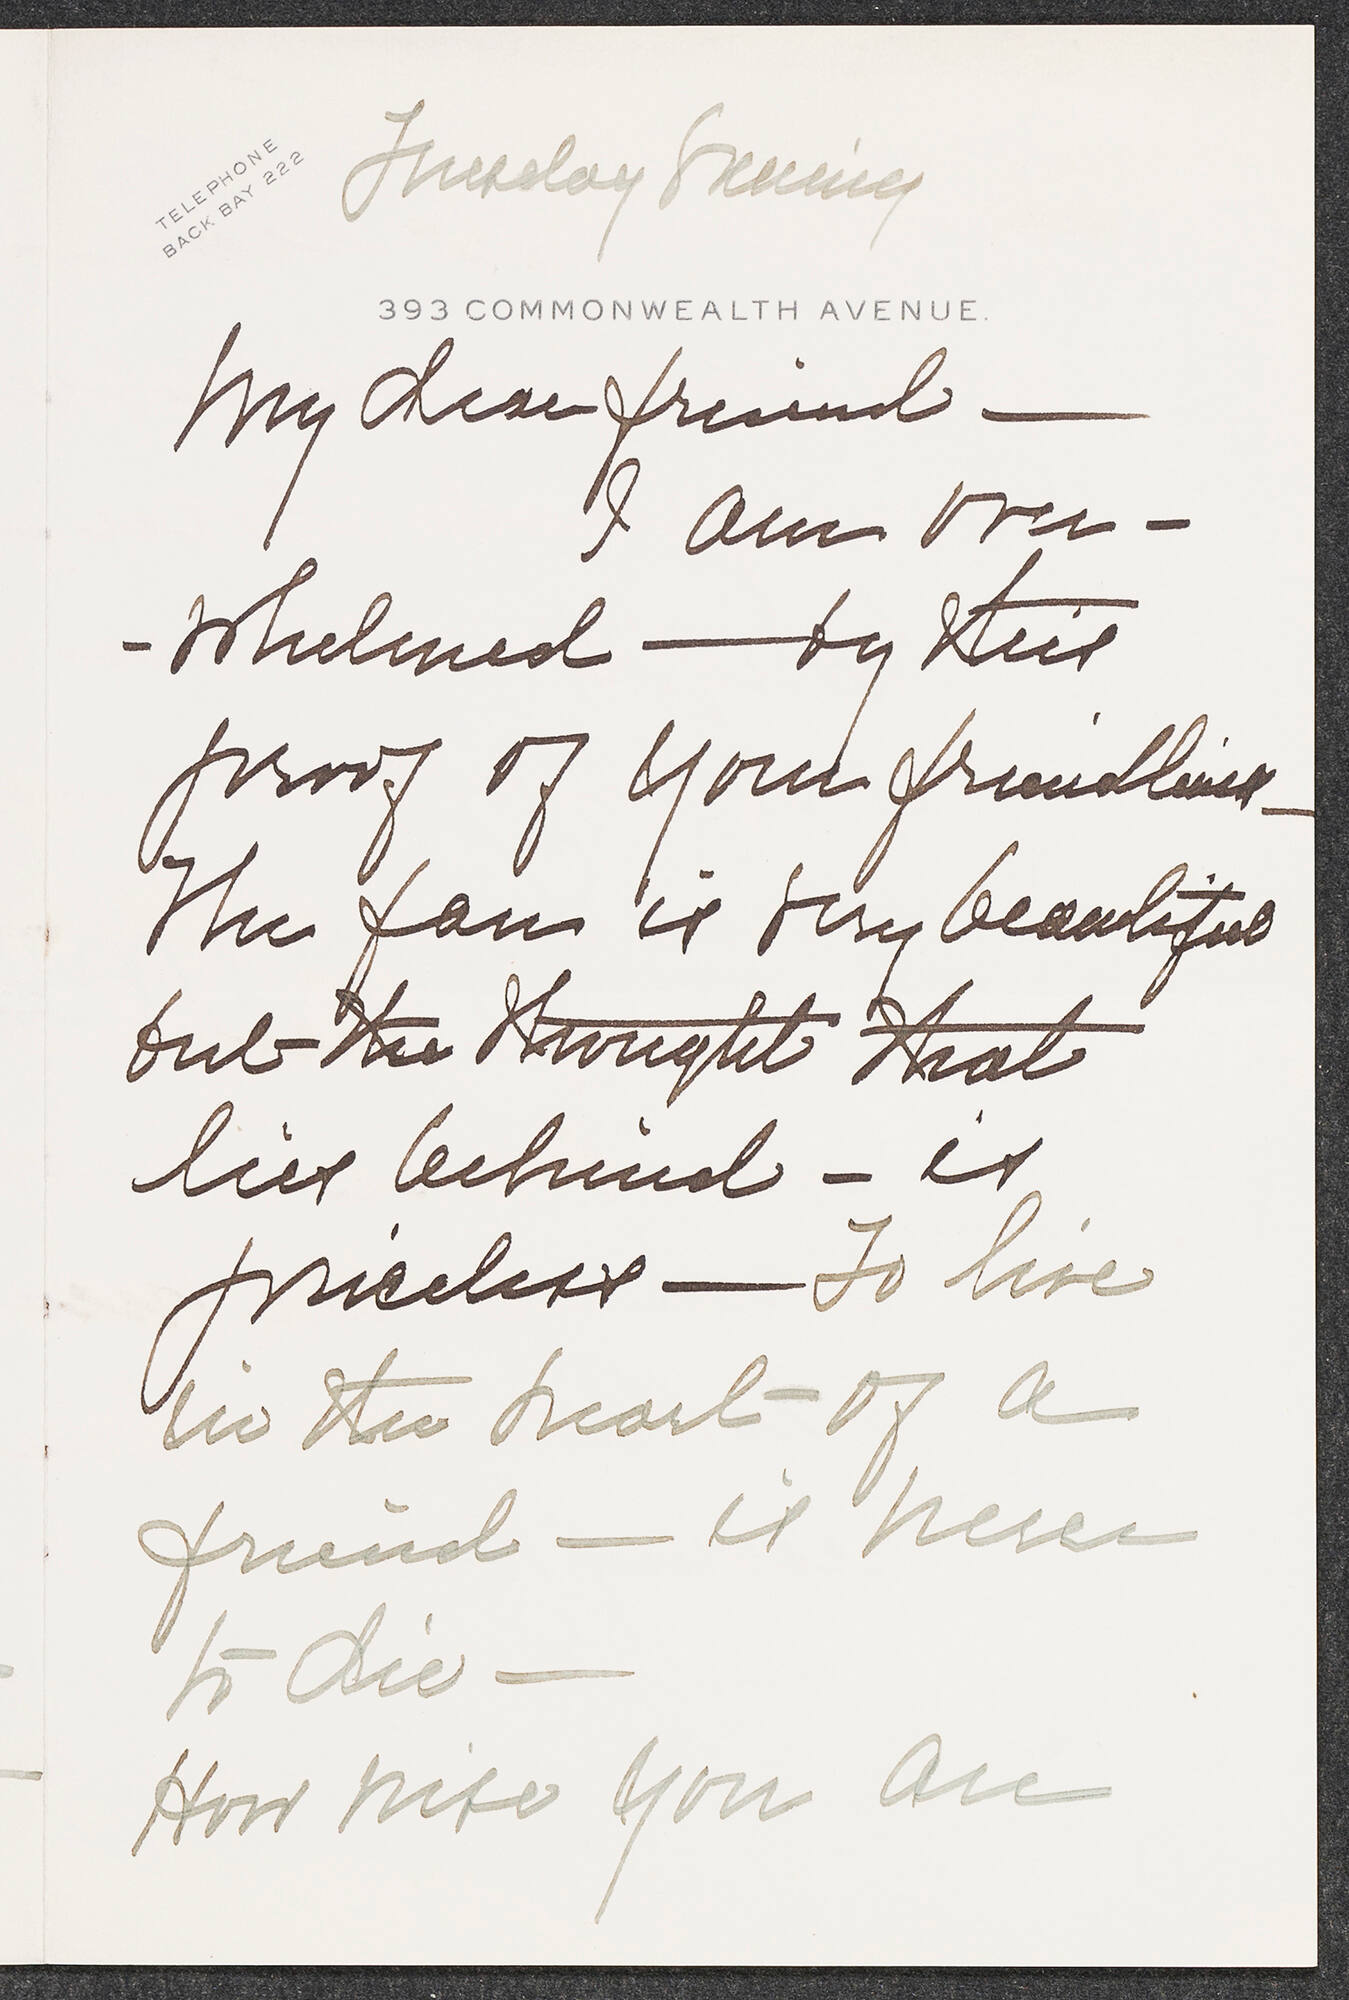 Tuesday Evening
TELEPHONE
BACK BAY 222
393 COMMONWEALTH AVENUE.
My dear friend —
I am over-
-whelmed — by this
proof of your friendliness —
The fan is very beautiful
but the thought that
lies behind - is
priceless — To live
in the heart of a
friend — is never
to die —
How nice you are